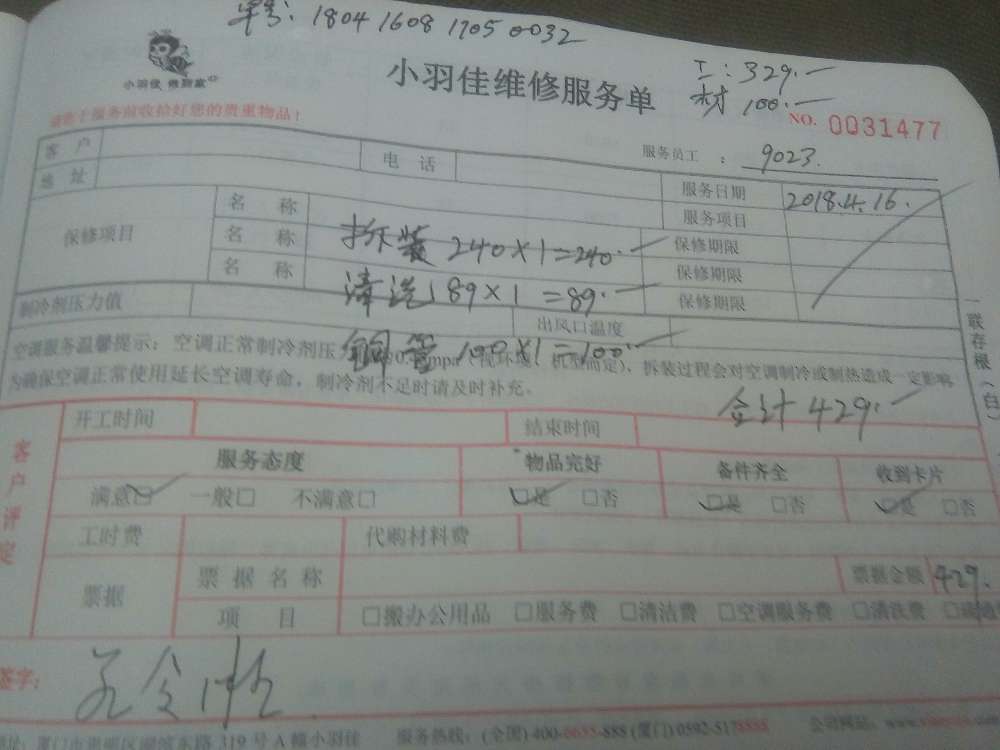 单号：1804 1608 1705 0032
工：329.—
材 100.—
小羽佳
小羽佳维修服务单
NO. 0031477
请您于服务前收拾好您的贵重物品！
服务员工： 9023.
客 户 电 话 服务日期 2018.4.16.
地 址 服务项目
保修项目
名 称 保修期限
名 称 拆装 240×1=240.— 保修期限
名 称 清洗 89×1=89.— 保修期限
制冷剂压力值 出风口温度
铜管 100×1=100.—
空调服务温馨提示：空调正常制冷剂压 mpa（视环境、机型而定），拆装过程会对空调制冷或制热造成一定影响
为确保空调正常使用延长空调寿命，制冷剂不足时请及时补充。
合计 429.—
一联存根（白）
客户评定
开工时间 结束时间
服务态度 物品完好 备件齐全 收到卡片
满意☑ 一般□ 不满意□ ☑是 □否 ☑是 □否 ☑是 □否
工时费 代购材料费
票据 票据名称 票据金额 429.
项 目 □搬办公用品 □服务费 □清洁费 □空调服务费 □清洗费
签字：
地址：厦门市思明区湖滨东路 319 号 A 幢小羽佳 服务热线：(全国) 400-0655-888 (厦门) 0592-5178888 公司网站：